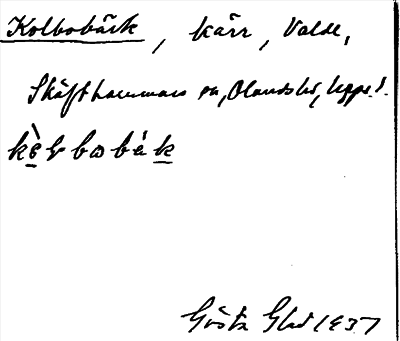 Kolbobäck, kärr, Valde,
Skäfthammars sn, Olands hd, Uppl.
kò̱lbobäḵ
Gösta Glad 1937